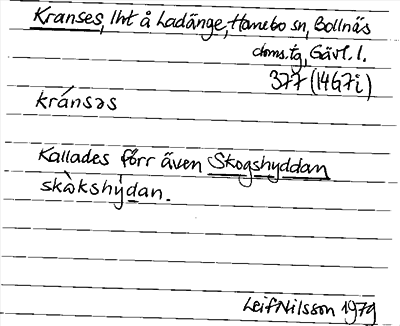 Kranses, lht å Ladänge, Hanebo sn, Bollnäs
doms.tg, Gävl. l.
377 (14G7i)
kránsəs
Kallades förr även Skogshyddan
skὼkshy̍dan.
Leif Nilsson 1979